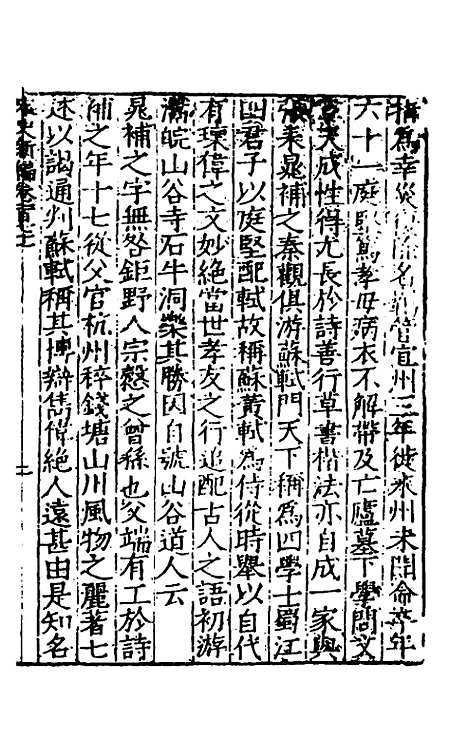 指爲幸災復除名羈管宜州三年徙永州未聞命卒年
六十一庭堅篤孝母病衣不解帶及亡廬墓下學問文
章天成性得尤長於詩善行草書楷法亦自成一家與
張耒晁補之秦觀俱游蘇軾門天下稱爲四學士蜀江
四君子以庭堅配軾故稱蘇黃軾爲侍從時舉以自代
有瓌偉之文妙絕當世孝友之行追配古人之語初游
灊皖山谷寺石牛洞樂其勝因自號山谷道人云
晁補之字無咎鉅野人宗愨之曾孫也父端有工於詩
補之年十七從父官杭州稡錢塘山川風物之麗著七
述以謁通判蘇軾稱其博辯雋偉絕人遠甚由是知名
宋史新編卷